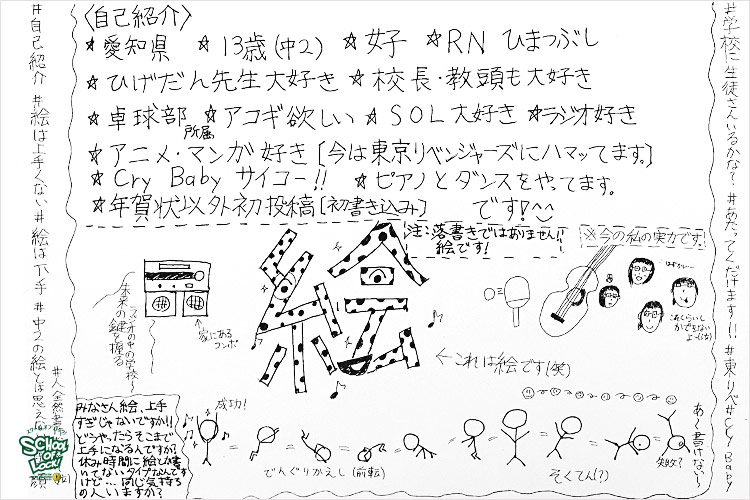 〈自己紹介〉
☆愛知県 ☆13歳(中2) ☆女子 ☆RN ひまつぶし
☆ひげだん先生大好き ☆校長・教頭も大好き
☆卓球部所属 ☆アコギ欲しい ☆SOL大好き ☆ラジオ好き
☆アニメ・マンガ好き[今は東京リベンジャーズにハマッてます。]
☆Cry Baby サイコー!! ☆ピアノとダンスをやってます。
☆年賀状以外初投稿[初書き込み] です!^^
注:落書きではありません!!
絵です!
※今の私の実力です!
絵
←これは絵です(笑)
ラジオの中の学校!
未来の鍵を握る
家にある
コンポ
はずかしー
これくらいし
かかけないよ
みなさん絵、上手
すぎじゃないですか!!
どうやったらそこまで
上手になるんですか?
休み時間に絵とか書
いてないタイプなんです
けど…同じ気持ち
の人いますか?
成功!
でんぐりかえし(前転)
そくてん(?)
失敗?
あ〜書けない〜!
#学校に生徒さんいるかな? #あたってくだけます!! #東リベ #Cry Baby
#自己紹介 #絵は上手くない #絵は下手 #中2の絵とは思え
SCHOOL OF LOCK!